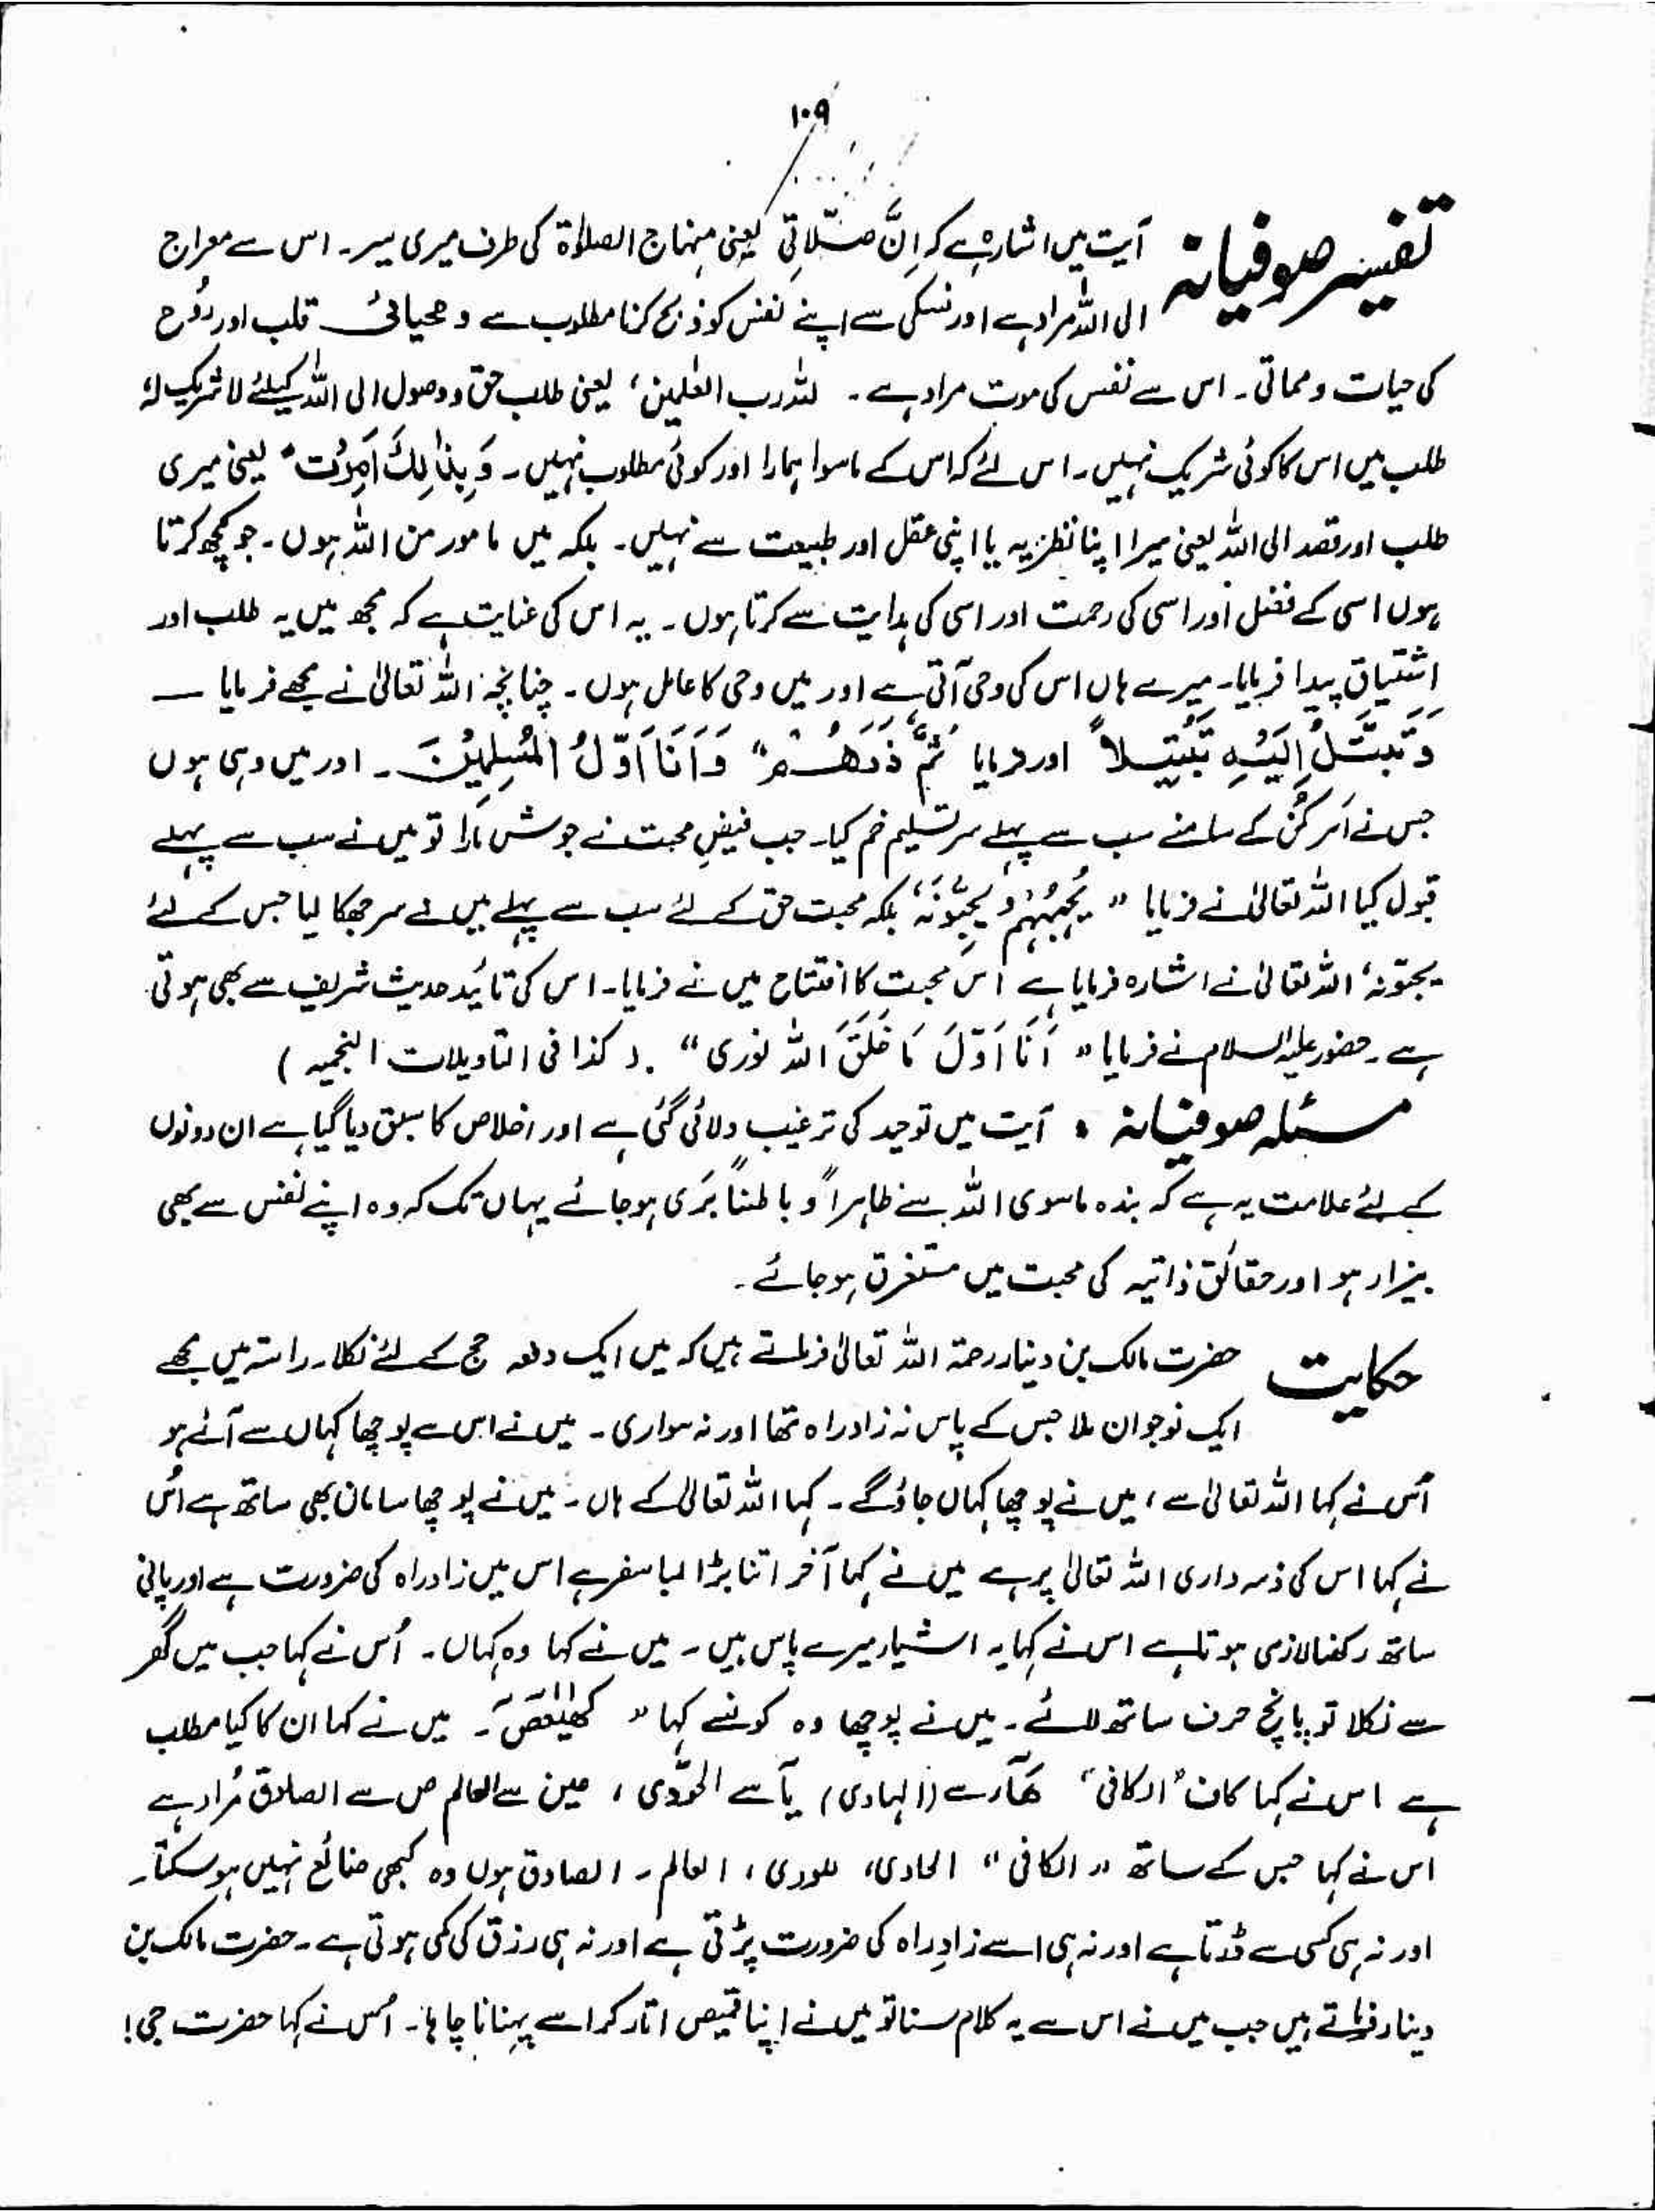 ۱۰۹
تفسیر صوفیانہ آیت میں اشارہ ہے کہ اِنَّ صَلَاتِی یعنی منہاج الصلاۃ کی طرف میری سیر۔ اس سے معراج
الی اللہ مراد ہے اور نسکی سے اپنے نفس کو ذبح کرنا مطلوب ہے و محیائی قلب اور رُوح
کی حیات و مماتی۔ اس سے نفس کی موت مراد ہے۔ للہ رب العٰلمین، یعنی طلب حق و وصول الی اللہ کیلئے لا شریک لہٗ
طلب میں اس کا کوئی شریک نہیں۔ اس لئے کہ اس کے ماسوا ہمارا اور کوئی مطلوب نہیں۔ وَ بِذٰلِكَ اُمِرْتُ یعنی میری
طلب اور قصد الی اللہ یعنی میرا اپنا نظریہ یا اپنی عقل اور طبیعت سے نہیں۔ بلکہ میں مامور من اللہ ہوں۔ جو کچھ کرتا
ہوں اسی کے فضل اور اسی کی رحمت اور اسی کی ہدایت سے کرتا ہوں۔ یہ اس کی عنایت ہے کہ مجھ میں یہ طلب اور
اشتیاق پیدا فرمایا۔ میرے ہاں اس کی وحی آتی ہے اور میں وحی کا عامل ہوں۔ چنانچہ اللہ تعالیٰ نے مجھے فرمایا ـــ
وَتَبَتَّلْ اِلَیْہِ تَبْتِیْلاً اور فرمایا ثُمَّ ذَرْھُمْ“ وَاَنَا اَوَّلُ الْمُسْلِمِیْنَ۔ اور میں وہی ہوں
جس نے اَمر کُنْ کے سامنے سب سے پہلے سر تسلیم خم کیا۔ جب فیضِ محبت نے جوش مارا تو میں نے سب سے پہلے
قبول کیا اللہ تعالیٰ نے فرمایا ” یُحِبُّہُمْ وَ یُحِبُّوْنَہٗ، بلکہ محبت حق کے لئے سب سے پہلے میں نے سر جھکا لیا جس کے لئے
یحبّونہٗ اللہ تعالیٰ نے اشارہ فرمایا ہے اُس محبت کا افتتاح میں نے فرمایا۔ اس کی تائید حدیث شریف سے بھی ہوتی
ہے۔ حضور علیہ السلام نے فرمایا ” اَنَا اَوَّلَ مَا خَلَقَ اللہ نوری “ . ( کذا فی التاویلات النجمیہ )
مسئلہ صوفیانہ ، آیت میں توحید کی ترغیب دلائی گئی ہے اور اخلاص کا سبق دیا گیا ہے ان دونوں
کے لئے علامت یہ ہے کہ بندہ ماسوی اللہ سے ظاہراً و باطناً بَری ہو جائے یہاں تک کہ وہ اپنے نفس سے بھی
بیزار ہو اور حقائق ذاتیہ کی محبت میں مستغرق ہو جائے۔
حکایت حضرت مالک بن دینار رحمۃ اللہ تعالیٰ فرماتے ہیں کہ میں ایک دفعہ حج کے لئے نکلا۔ راستہ میں مجھے
ایک نوجوان ملا جس کے پاس نہ زادراہ تھا اور نہ سواری۔ میں نے اس سے پوچھا کہاں سے آئے ہو
اُس نے کہا اللہ تعالیٰ سے، میں نے پوچھا کہاں جاؤ گے۔ کہا اللہ تعالیٰ کے ہاں۔ میں نے پوچھا سامان بھی ساتھ ہے اُس
نے کہا اس کی ذمہ داری اللہ تعالیٰ پر ہے میں نے کہا آخر اتنا بڑا لمبا سفر ہے اس میں زادراہ کی ضرورت ہے اور پانی
ساتھ رکھنا لازمی ہوتا ہے اس نے کہا یہ اشیاء میرے پاس ہیں۔ میں نے کہا وہ کہاں۔ اُس نے کہا جب میں گھر
سے نکلا تو پانچ حرف ساتھ لئے۔ میں نے پوچھا وہ کونسے کہا ” کٓھٰیٰعٓصٓ۔ میں نے کہا ان کا کیا مطلب
ہے اس نے کہا کاف ”الکافی“ ھَاء سے (الہادی) یآ سے المؤدی ، عین سے العالم ص سے الصادق مُراد ہے
اس نے کہا جس کے ساتھ ” الکافی “ الہادی، المودی ، العالم۔ الصادق ہوں وہ کبھی ضائع نہیں ہو سکتا۔
اور نہ ہی کسی سے ڈرتا ہے اور نہ ہی اسے زادِ راہ کی ضرورت پڑتی ہے اور نہ ہی رزق کی کمی ہوتی ہے۔ حضرت مالک بن
دینار فرماتے ہیں جب میں نے اس سے یہ کلام سنا تو میں نے اپنا قمیص اتار کر اسے پہنانا چاہا۔ اُس نے کہا حضرت جی!